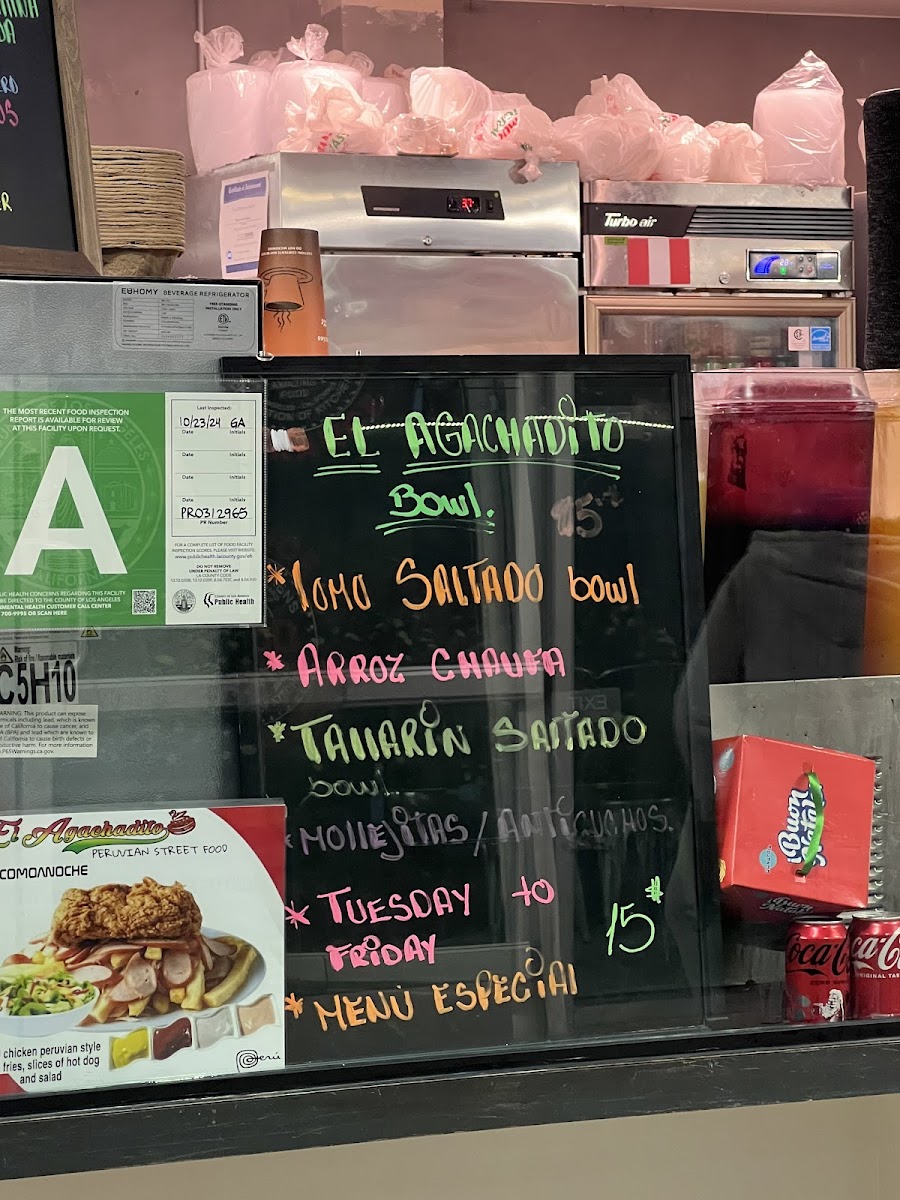 ER
EUHOMY BEVERAGE REFRIGERATOR
FREE-STANDING
INSTALLATION ONLY
Turbo air
THE MOST RECENT FOOD INSPECTION
REPORT IS AVAILABLE FOR REVIEW
AT THIS FACILITY UPON REQUEST.
A
Last Inspected:
10/23/24 GA
Date Initials
Date Initials
Date Initials
Date Initials
PR0312965
PR Number
FOR A COMPLETE LIST OF FOOD FACILITY
INSPECTION SCORES, PLEASE VISIT WEBSITE,
www.publichealth.lacounty.gov/eh
DO NOT REMOVE
UNDER PENALTY OF LAW
LA COUNTY CODE
Public Health
LIC HEALTH CONCERNS REGARDING THIS FACILITY
BE DIRECTED TO THE COUNTY OF LOS ANGELES
NMENTAL HEALTH CUSTOMER CALL CENTER
700-9995 OR SCAN HERE
Warning:
Risk of fire / flammable materials
C5H10
WARNING: This product can expose
P65Warnings.ca.gov.
EL AGACHADITO
Bowl.
15
* lomo SALTADO bowl
* ARROZ CHAUFA
* TALLARIN SALTADO
bowl..
* MOLLEJITAS / ANTICUCHOS.
* TUESDAY to
FRIDAY
15$
* MENÚ ESPECIAl
El Agachadito
PERUVIAN STREET FOOD
COMOANOCHE
chicken peruvian style
fries, slices of hot dog
and salad
Perú
Buon
Natale
Coca-C
ca-C
ORIGINAL TAS